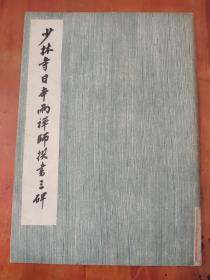 少林寺日本两禅师撰书三碑